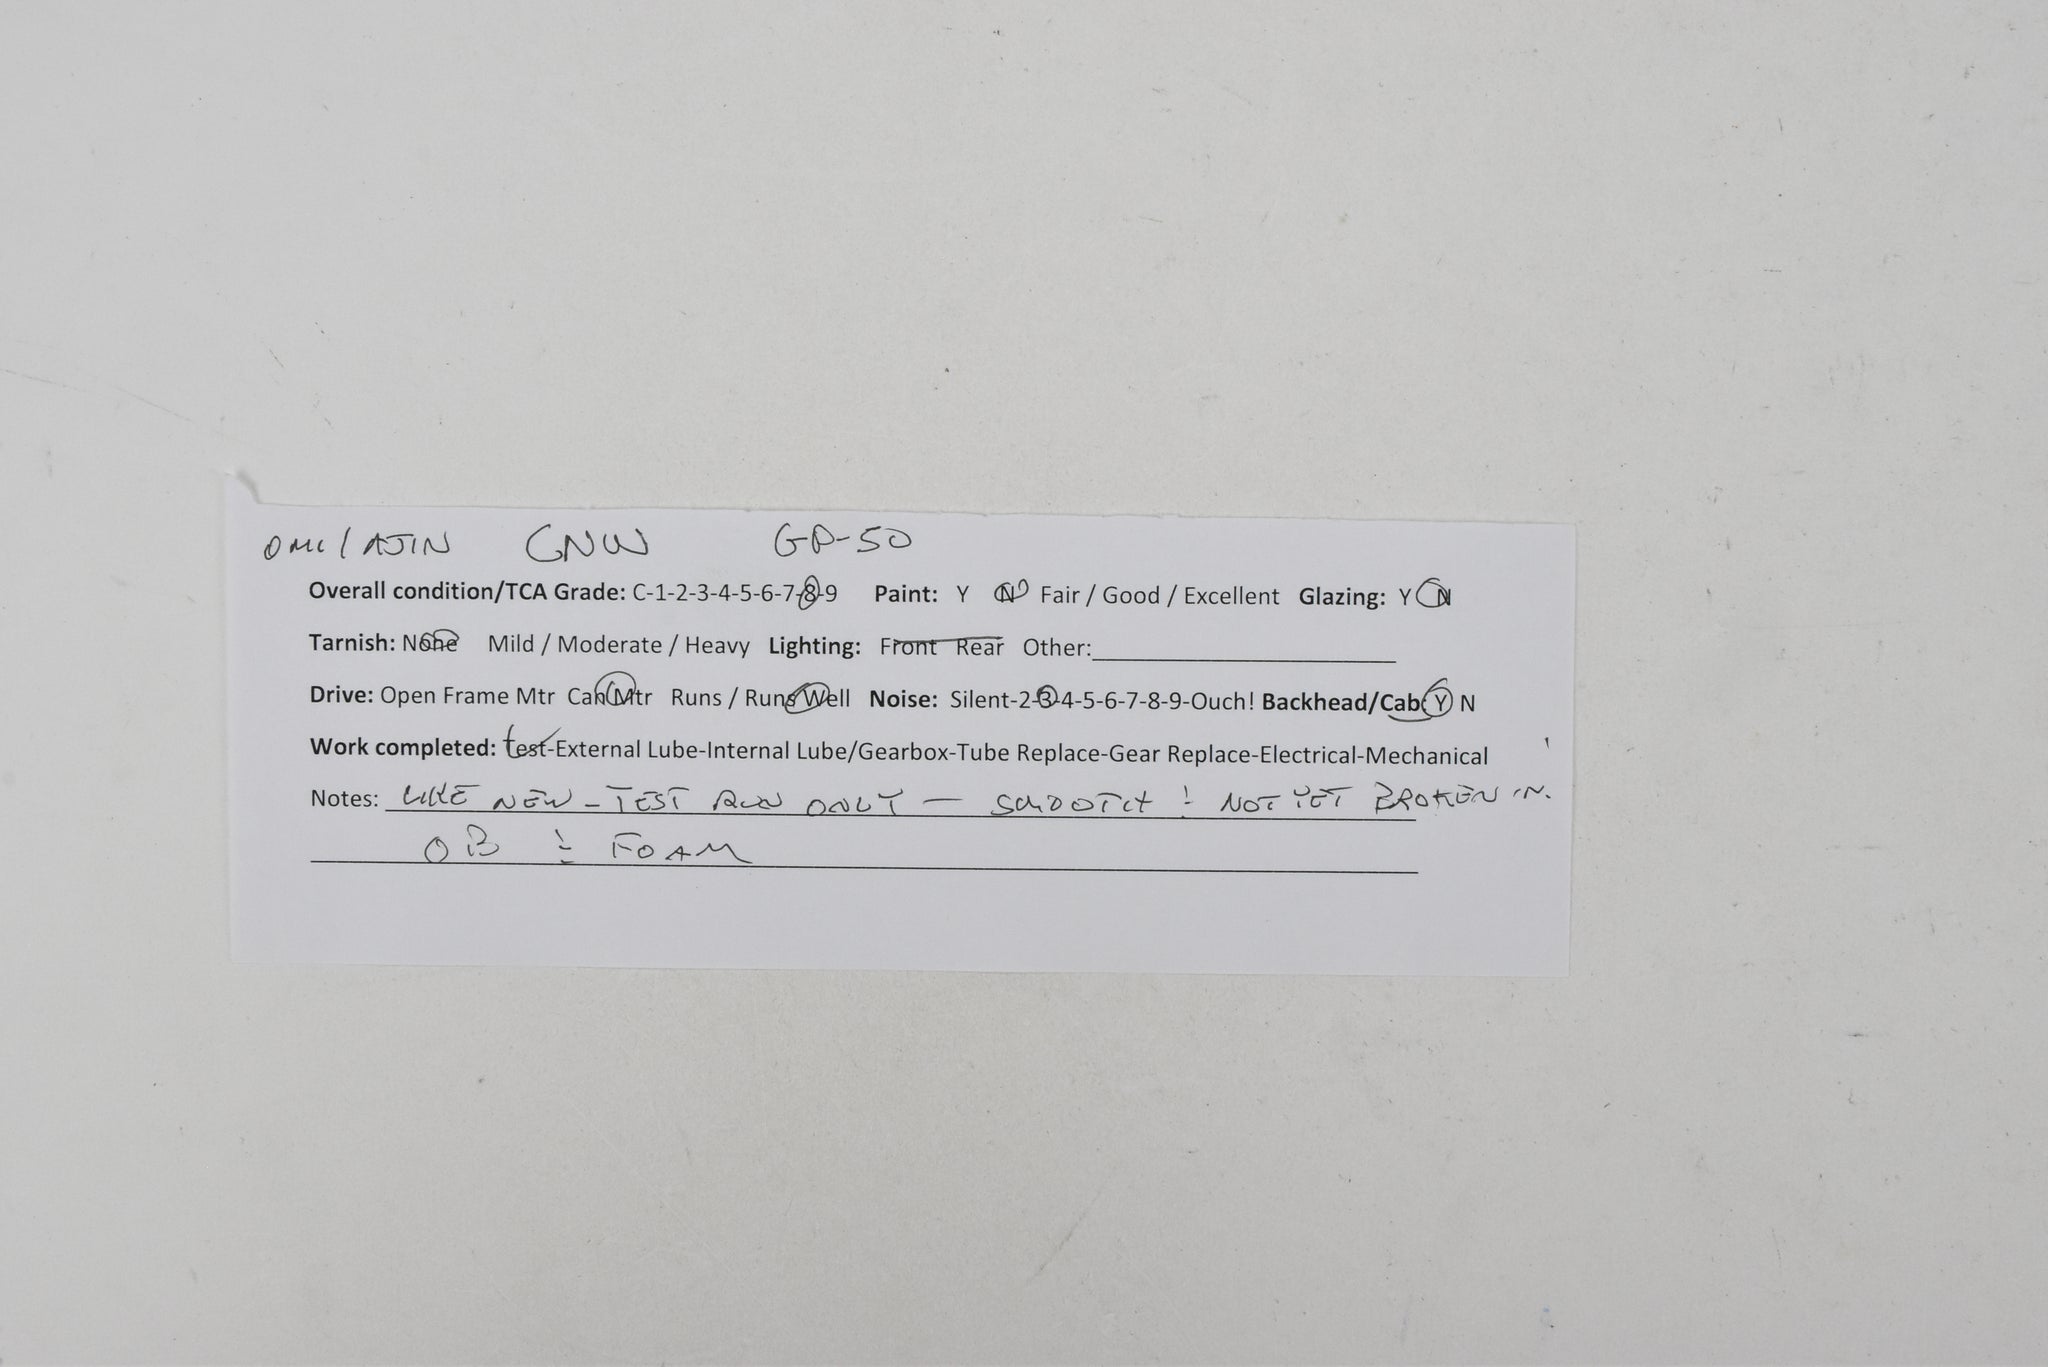 OMI / AJIN CNW GP-50
Overall condition/TCA Grade: C-1-2-3-4-5-6-7-8-9 Paint: Y N Fair / Good / Excellent Glazing: Y N
Tarnish: None Mild / Moderate / Heavy Lighting: Front Rear Other:
Drive: Open Frame Mtr Can Mtr Runs / Runs Well Noise: Silent-2-3-4-5-6-7-8-9-Ouch! Backhead/Cab: Y N
Work completed: test-External Lube-Internal Lube/Gearbox-Tube Replace-Gear Replace-Electrical-Mechanical
Notes: LIKE NEW - TEST RUN ONLY — SMOOTH ! NOT YET BROKEN IN.
OB & FOAM